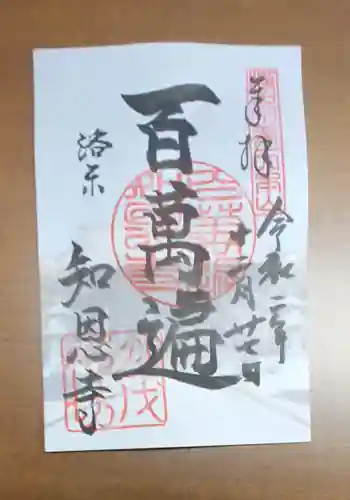 奉拝
令和二年
十二月廿七日
百萬遍
洛京
知恩寺